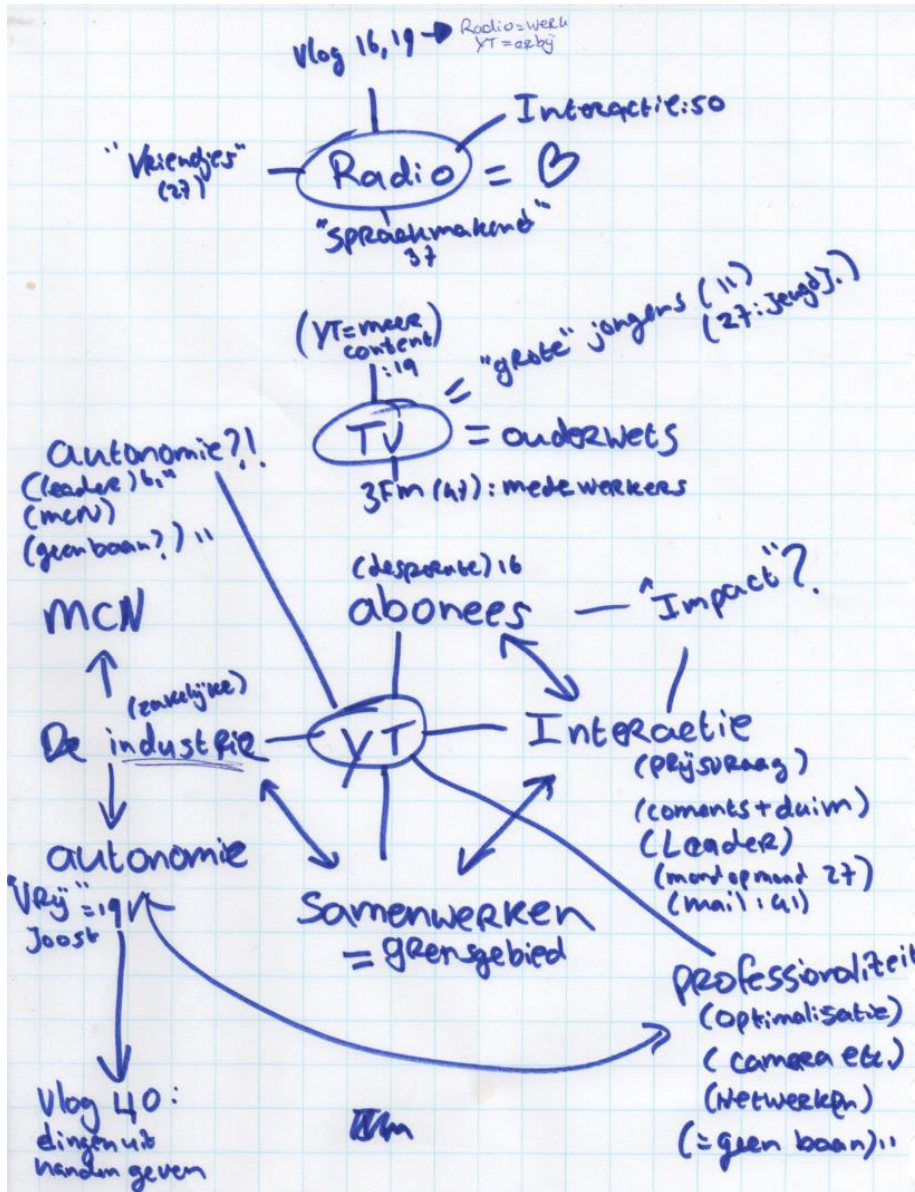 Vlog 16, 19 → Radio = werk
YT = erbij
Interactie: 50
"Vriendjes"
(27)
Radio = ♡
"spraakmakend"
37
(YT = meer
content)
: 19
= "grote" jongens (11)
(27: jeugdj.)
TV = ouderwets
3Fm (47): medewerkers
autonomie?!
(leader) 6, 11
(mcn)
(geen baan?) 11
(desperate) 16
abonees — "Impact"?
MCN
(zakelijke)
De industrie
YT
Interactie
(prijsvraag)
(coments + duim)
(Leader)
(mond op mond 27)
(mail: 41)
autonomie
"Vrij" = 19
Joost
Samenwerken
= grensgebied
professionaliteit
(optimalisatie)
(camera etc.)
(Netwerken)
(= geen baan) 11
Vlog 40:
dingen uit
handen geven